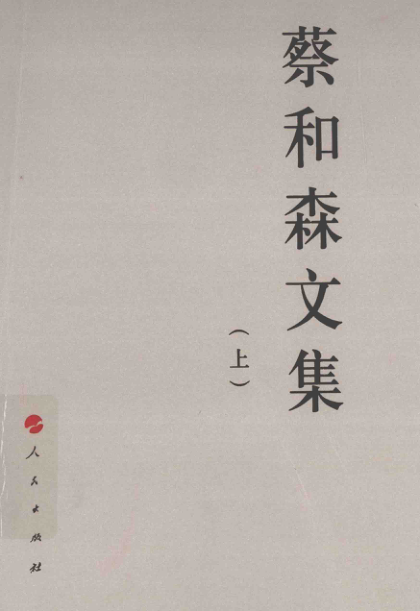 蔡和森文集
（上）
人民出版社